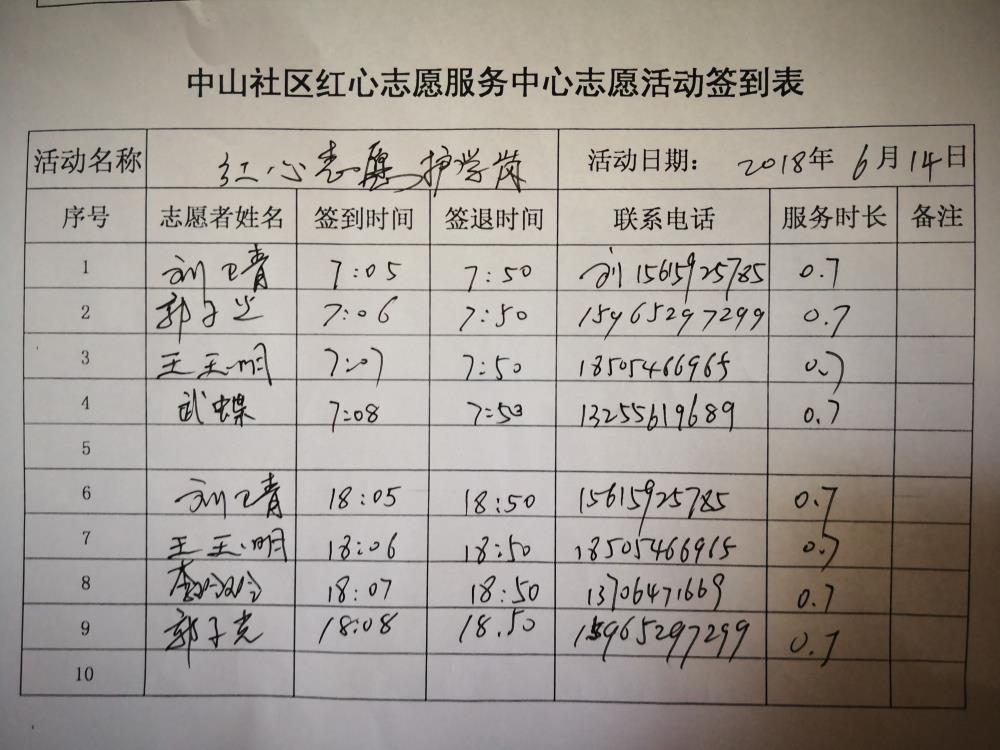 中山社区红心志愿服务中心志愿活动签到表
活动名称 红心志愿护学岗 活动日期： 2018年 6月14日
序号 志愿者姓名 签到时间 签退时间 联系电话 服务时长 备注
1 刘卫青 7:05 7:50 刘 15615925785 0.7
2 郭子光 7:06 7:50 15965297299 0.7
3 王玉明 7:07 7:50 18505466965 0.7
4 武蝶 7:08 7:50 13255619689 0.7
5
6 刘卫青 18:05 18:50 15615925785 0.7
7 王玉明 18:06 18:50 18505466965 0.7
8 18:07 18:50 13706471669 0.7
9 郭子光 18:08 18.50 15965297299 0.7
10